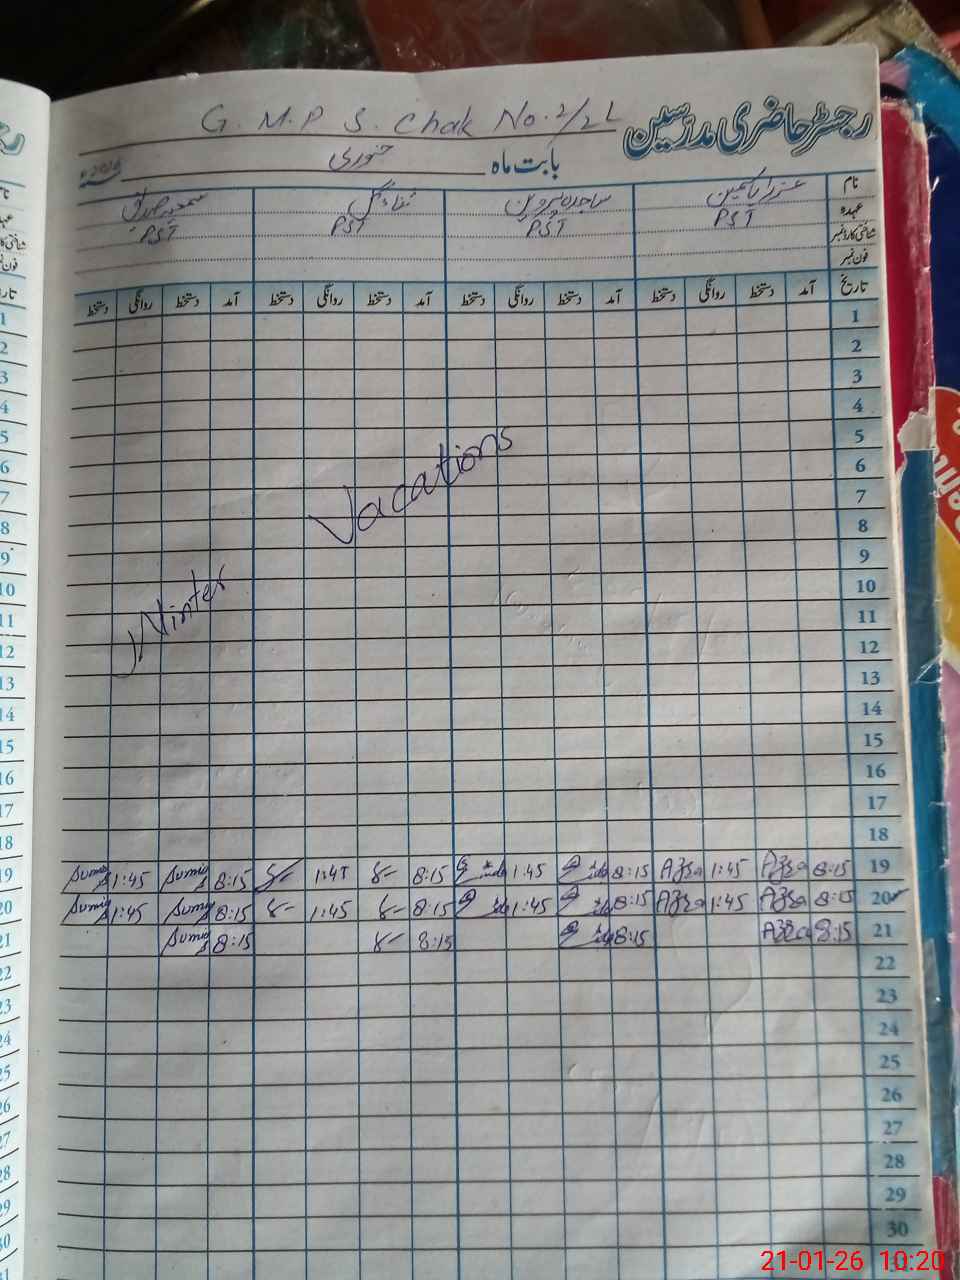 G.M.P.S. Chak No. 2/2L
رجسٹر حاضری مدرسین
بابت ماہ جنوری
نام عذرا یاسمین ساجدہ پروین سمعیہ صدیق
عہدہ PST PST PST PST
شناختی کارڈ نمبر
فون نمبر
تاریخ آمد دستخط روانگی دستخط آمد دستخط روانگی دستخط آمد دستخط روانگی دستخط آمد دستخط روانگی دستخط
1
2
3
4
5
6
7
8
9
10
11
12
13
14
15
16
17
18
Winter Vacations
19 8:15 Azra 1:45 Azra 8:15 1:45 8:15 1:45 8:15 Sumia 1:45 Sumia
20 8:15 Azra 1:45 Azra 8:15 1:45 8:15 1:45 8:15 Sumia 1:45 Sumia
21 8:15 Azra 8:15 8:15 8:15 Sumia
22
23
24
25
26
27
28
29
30
21-01-26 10:20